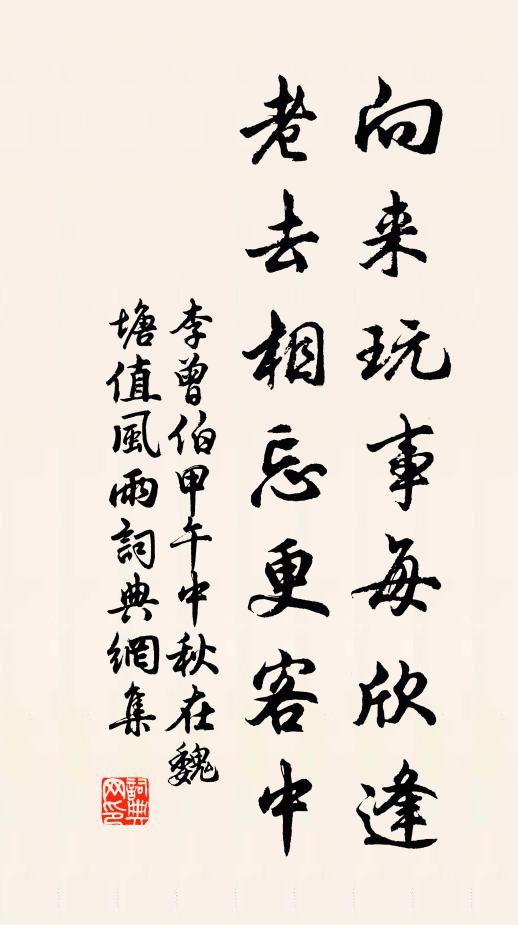 向来玩事每欣逢
老去相忘更客中
李曾伯甲午中秋在魏
塘值風雨詞典網集
詞典
网印